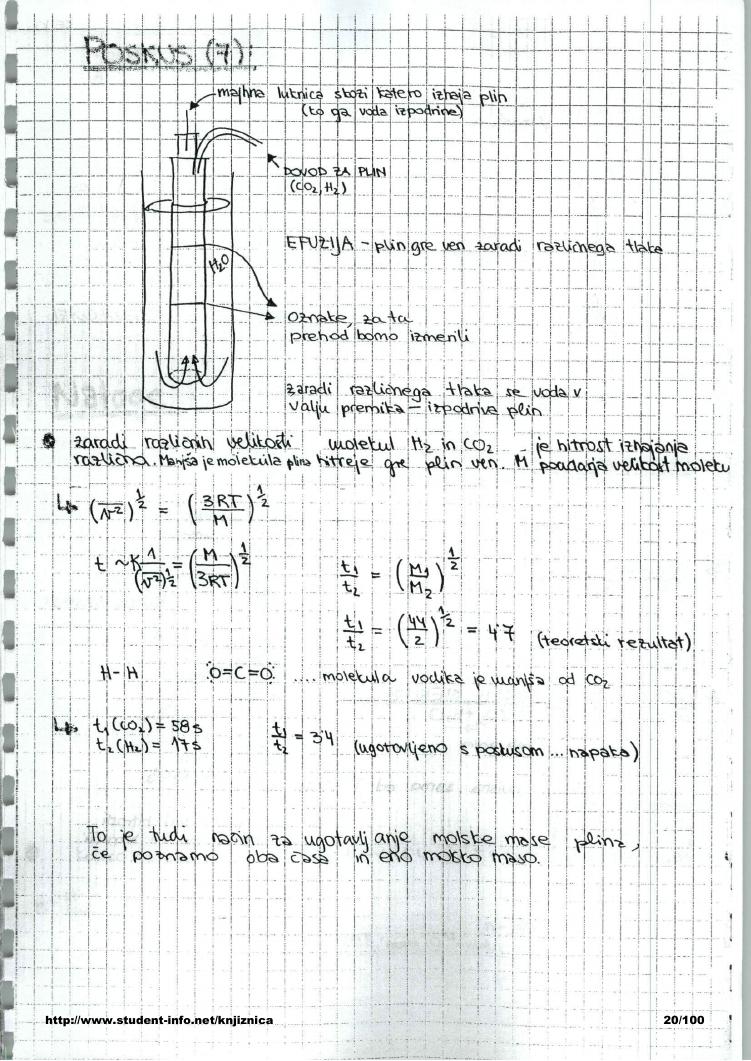 POSKUS (7):
majhna luknica skozi katero izhaja plin
(to ga voda izpodrine)
DOVOD ZA PLIN
(CO₂, H₂)
EFUZIJA - plin gre ven zaradi različnega tlaka
H₂O
Oznake, za ta
prehod bomo izmerili
zaradi različnega tlaka se voda v
valju premika - izpodriva plin
zaradi različnih velikosti molekul H₂ in CO₂ - je hitrost izhajanja
različna. Manjša je molekula plina hitreje gre plin ven. M ponazarja velikost moleku
(v̅²)^½ = (3RT/M)^½
t ~ K 1/(v̅²)^½ = (M/3RT)^½
t₁/t₂ = (M₁/M₂)^½
t₁/t₂ = (44/2)^½ = 4'7 (teoretski rezultat)
H-H :O=C=O: .... molekula vodika je manjša od CO₂
t₁(CO₂) = 58s
t₂(H₂) = 17s
t₁/t₂ = 3'4 (ugotovljeno s poskusom ... napaka)
To je tudi način za ugotavljanje molske mase plina,
če poznamo oba časa in eno molsko maso.
http://www.student-info.net/knjiznica 20/100